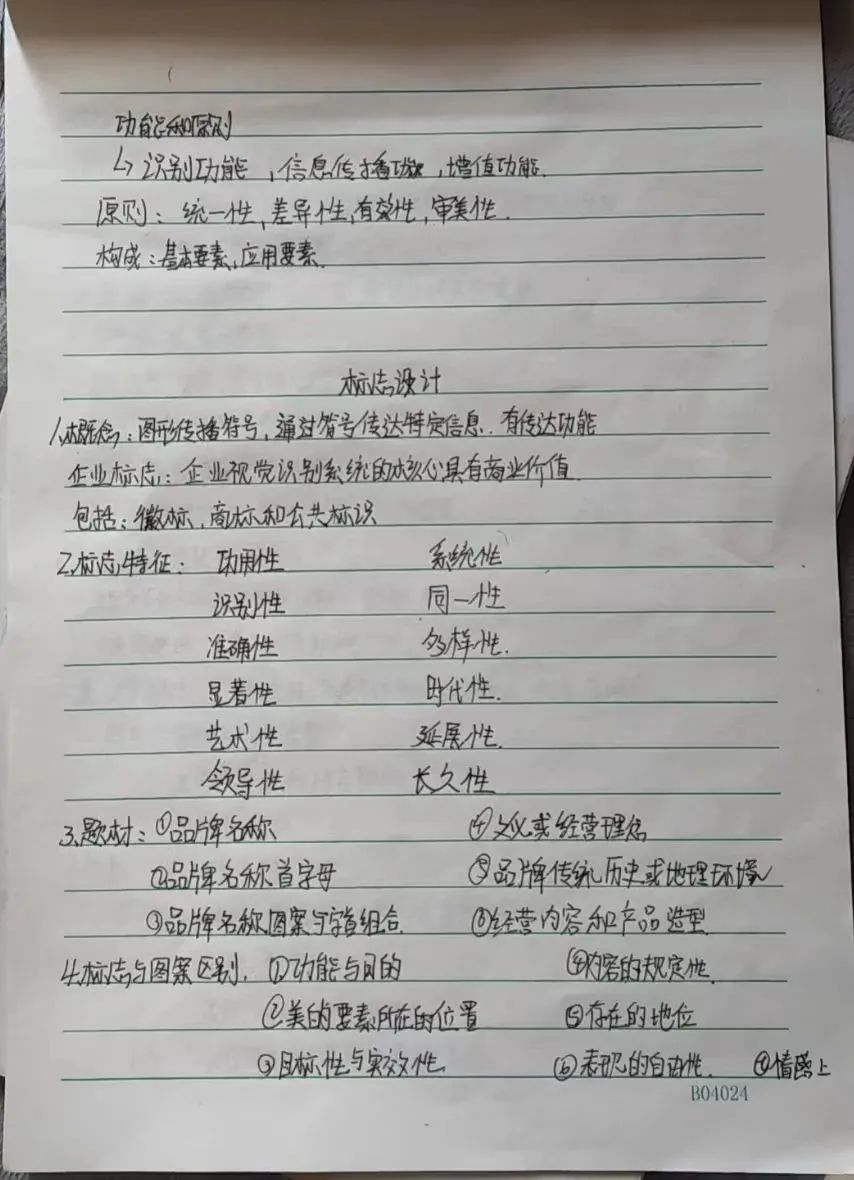 功能和原则
↳ 识别功能，信息传播功能，增值功能.
原则：统一性,差异性,有效性,审美性.
构成：基本要素,应用要素.
标志设计
1.概念：图形传播符号，通过符号传达特定信息. 有传达功能
企业标志：企业视觉识别系统的核心具有商业价值
包括：徽标,商标和公共标识
2.标志特征： 功用性 系统性
识别性 同一性
准确性 多样性.
显著性 时代性.
艺术性 延展性.
领导性 长久性
3.题材：①品牌名称 ④文义或经营理念
②品牌名称首字母 ⑤品牌传统,历史或地理环境
③品牌名称图案与字首组合. ⑥经营内容和产品造型
4.标志与图案区别. ①功能与目的 ④内容的规定性.
②美的要素所在的位置 ⑤存在的地位
③目标性与实效性 ⑥表现的自由性. ⑦情感上
B04024